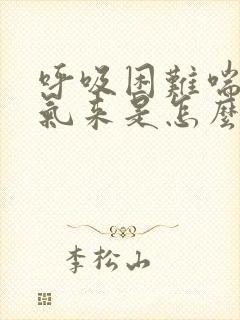 呼吸困難喘
氣來是怎麼
李松山